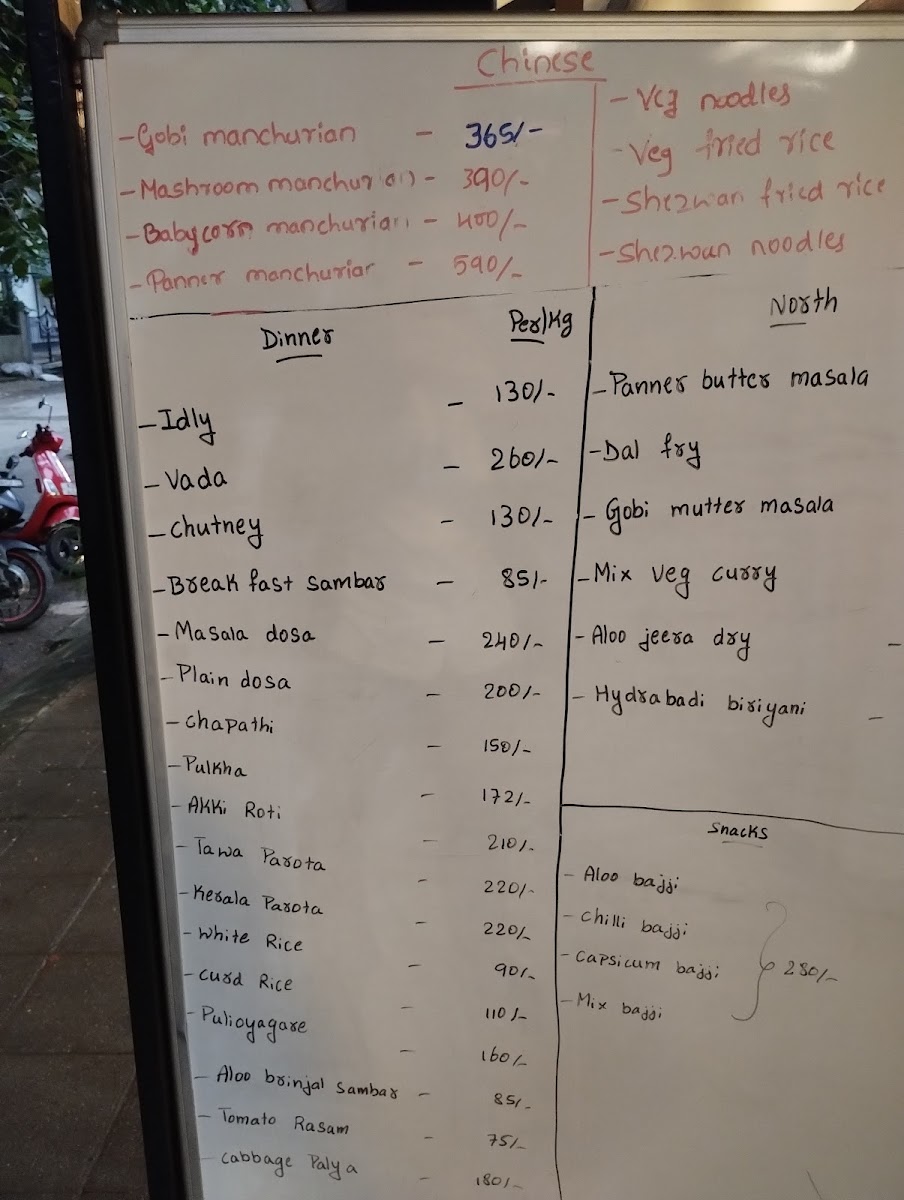 Chinese
- Gobi manchurian - 365/-
- Mashroom manchurian - 390/-
- Babycorn manchurian - 400/-
- Panner manchurian - 590/-
- Veg noodles
- Veg fried rice
- Shezwan fried rice
- Shezwan noodles
Dinner Per/Kg
- Idly - 130/-
- Vada - 260/-
- Chutney - 130/-
- Break fast sambar - 85/-
- Masala dosa - 240/-
- Plain dosa - 200/-
- Chapathi - 150/-
- Pulkha - 172/-
- Akki Roti - 210/-
- Tawa Parota - 220/-
- Kerala Parota - 220/-
- White Rice - 90/-
- Curd Rice - 110/-
- Pulioyagare - 160/-
- Aloo brinjal sambar - 85/-
- Tomato Rasam - 75/-
- Cabbage Palya - 180/-
North
- Panner butter masala
- Dal fry
- Gobi mutter masala
- Mix veg curry
- Aloo jeera dry -
- Hydrabadi biriyani -
Snacks
- Aloo bajji
- Chilli bajji
- Capsicum bajji 280/-
- Mix bajji